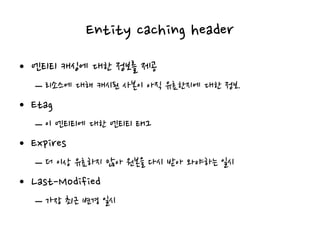 Entity caching header
• 엔티티 캐싱에 대한 정보를 제공
– 리소스에 대해 캐시된 사본이 아직 유효한지에 대한 정보.
• Etag
– 이 엔티티에 대한 엔티티 태그
• Expires
– 더 이상 유효하지 않아 원본을 다시 받아 와야하는 일시
• Last-Modified
– 가장 최근 변경 일시